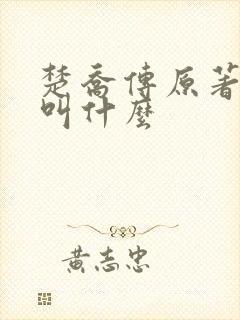 楚喬傳原著
叫什麼
黃志忠